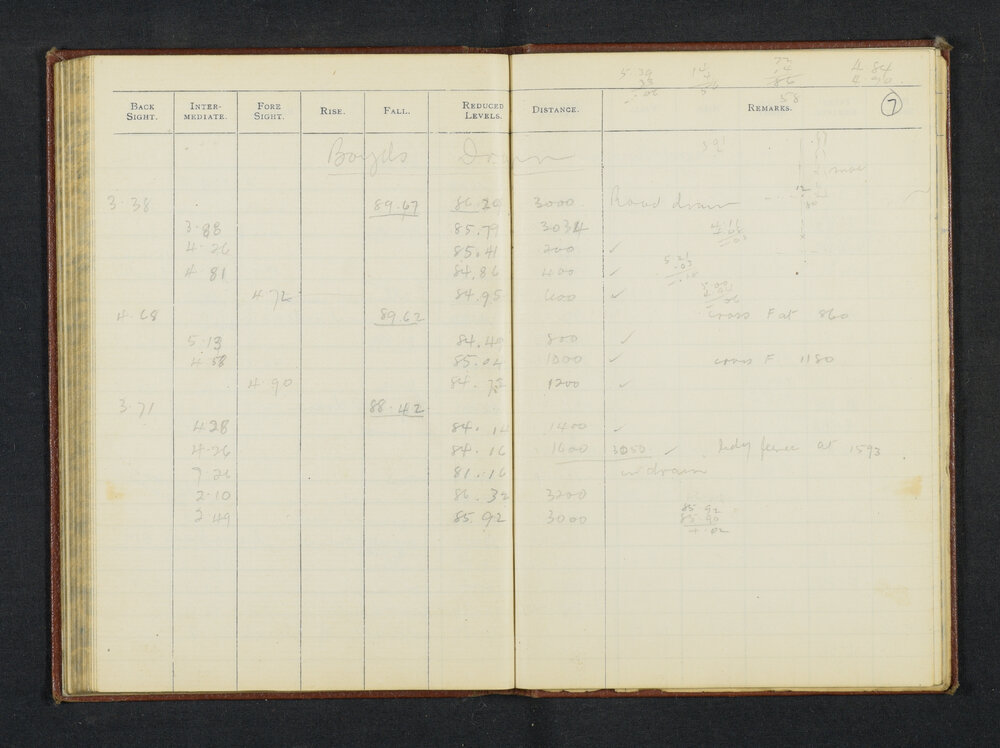 5.39 14 72 4.84
33 4 14 4.90
5.06 50 86
58
BACK SIGHT. INTER-MEDIATE. FORE SIGHT. RISE. FALL. REDUCED LEVELS. DISTANCE. REMARKS. 7
Boyds Drain
3.38 89.67 86.20 3000 Road drain
3.88 85.79 3034
4.26 85.41 200 ✓
4.81 84.86 400 ✓
4.72 84.95 600 ✓
4.68 89.62 cross F at 860
5.13 84.40 800 ✓
4.58 85.04 1000 ✓ cross F 1180
4.90 84.72 1200 ✓
3.71 88.42
4.28 84.14 1400 ✓
4.26 84.16 1600 3050 ✓ bdy fence at 1593
7.26 81.16 in drain
2.10 86.32 3200
2.49 85.92 3000
85.92
85.90
+.02